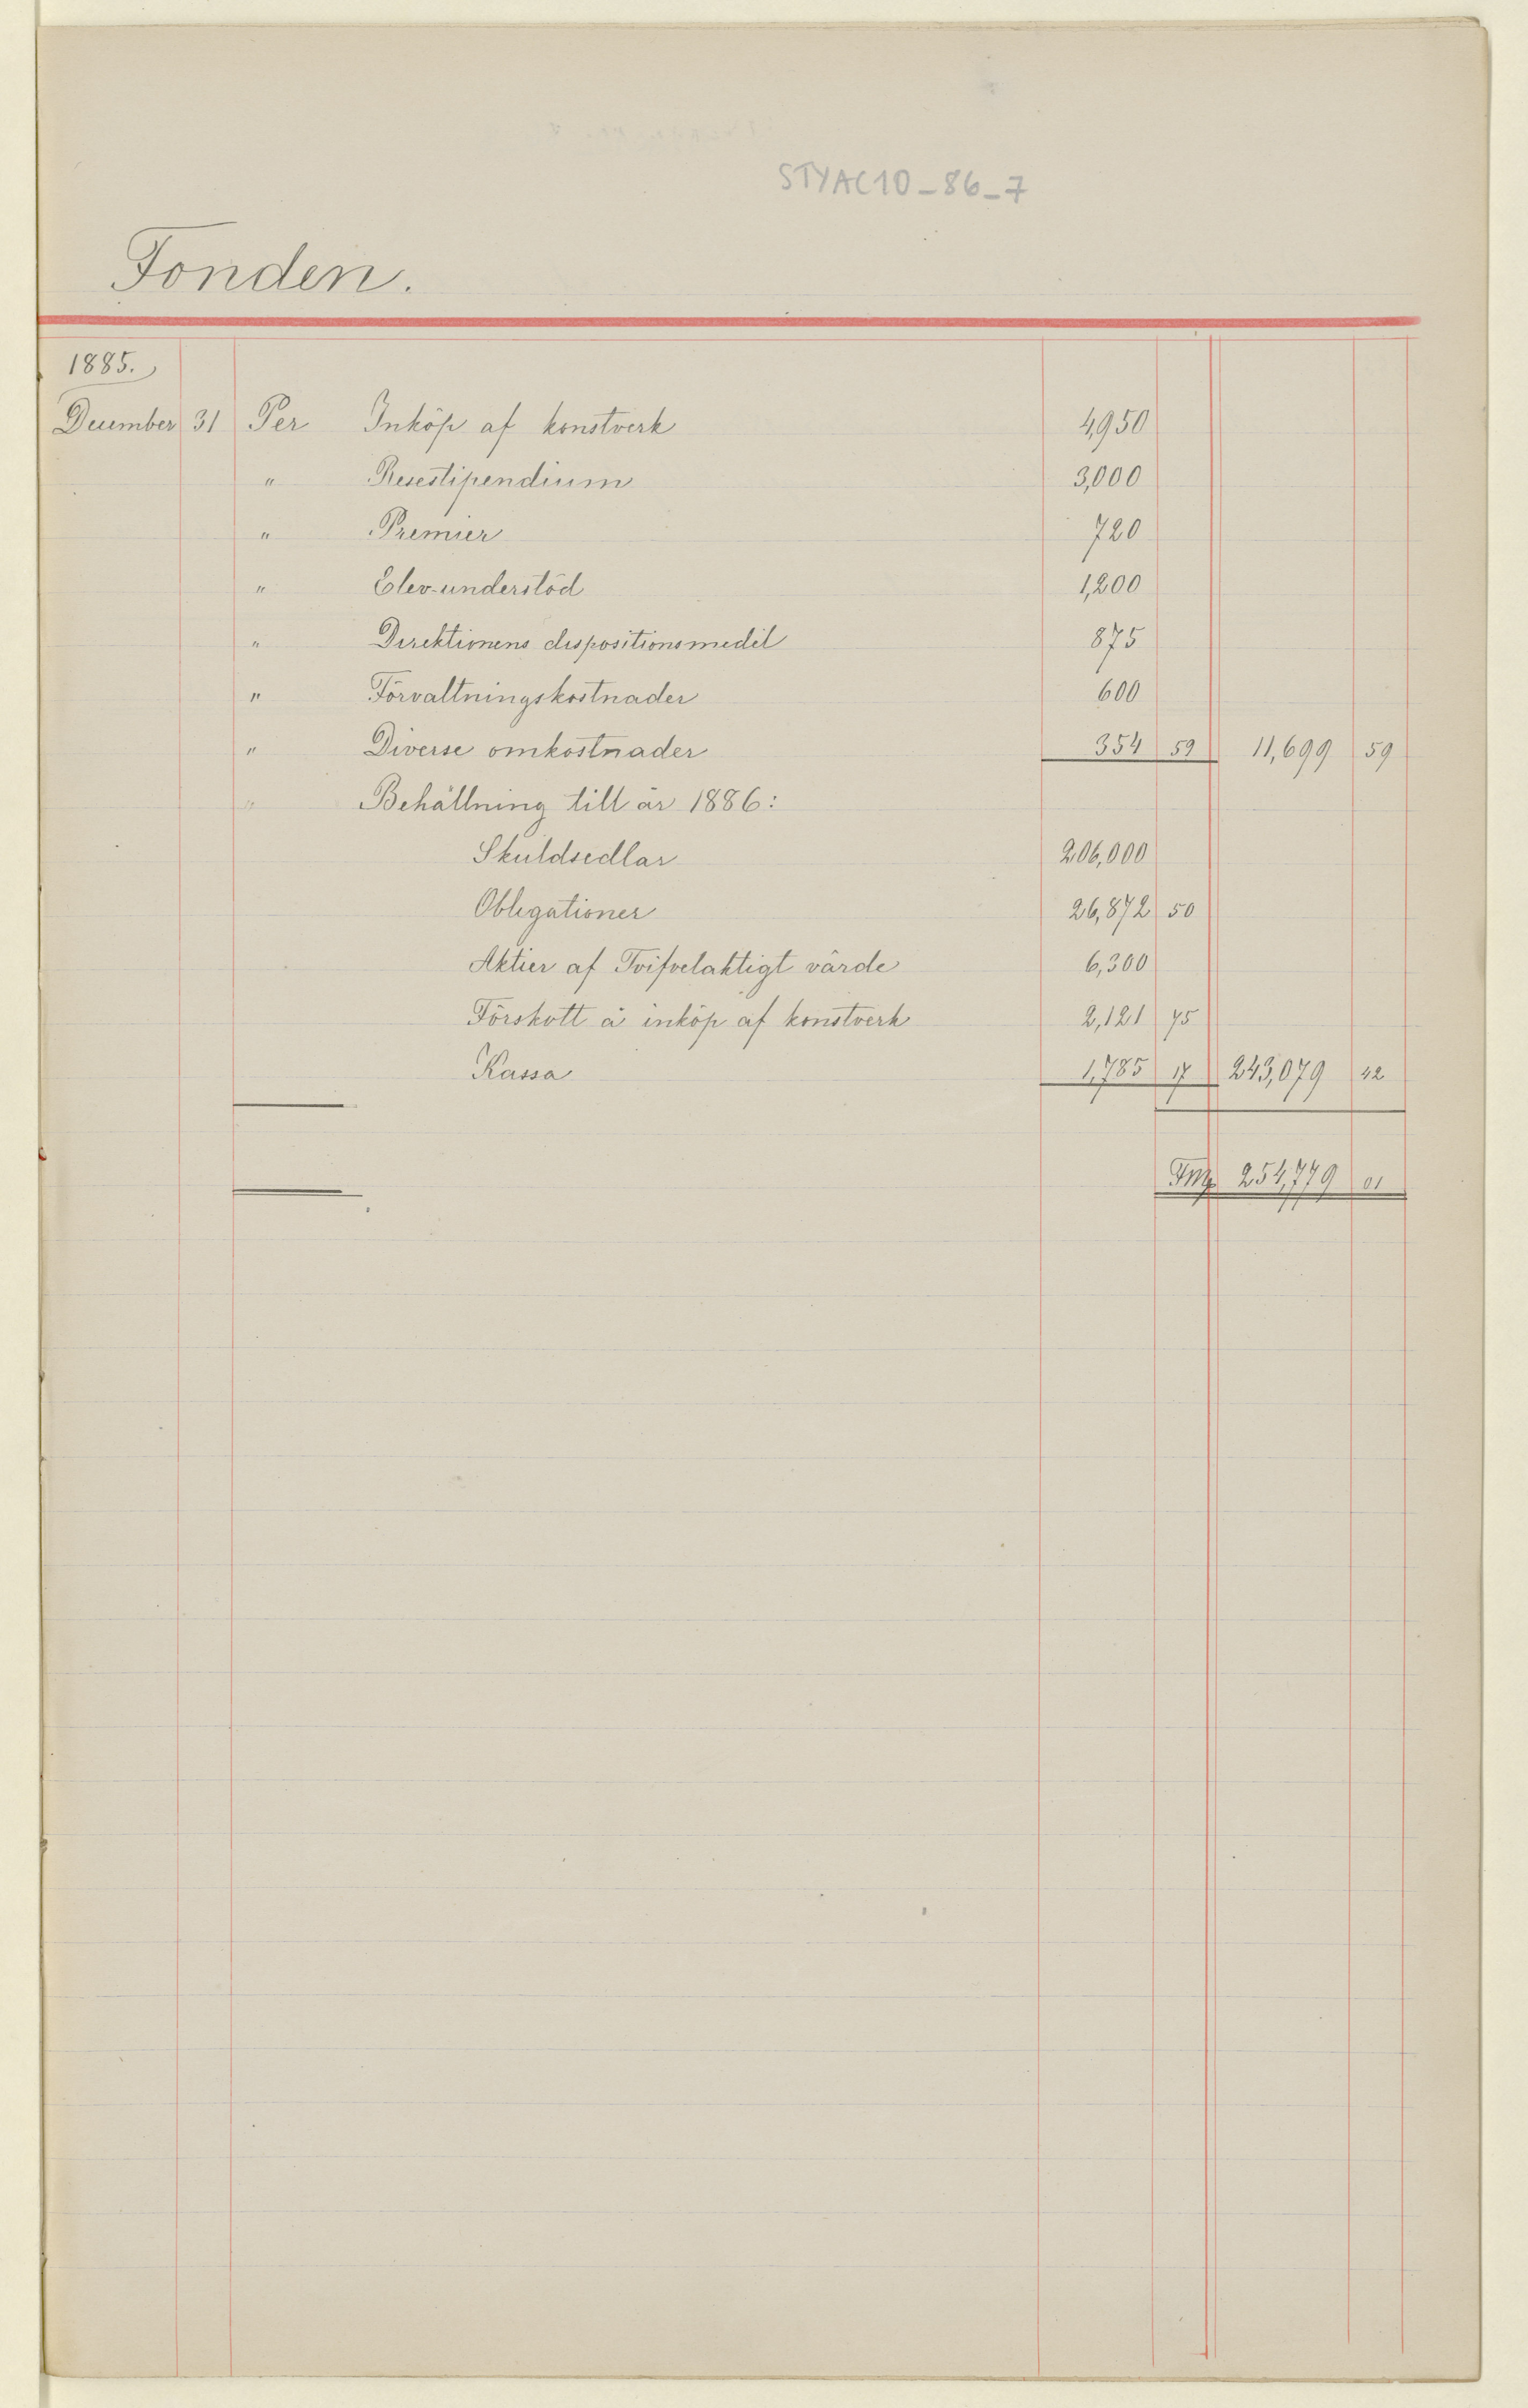 STYAC10_86_7
Fonden.
1885.
December 31 Per Inköp af konstverk 4,950
" Resestipendium 3,000
" Premier 720
" Elev-understöd 1,200
" Direktionens dispositionsmedel 875
" Förvaltningskostnader 600
" Diverse omkostnader 354 59 11,699 59
" Behållning till år 1886:
Skuldsedlar 206,000
Obligationer 26,872 50
Aktier af Tvifvelaktigt värde 6,300
Förskott å inköp af konstverk 2,121 75
Kassa 1,785 17 243,079 42
Fmk 254,779 01